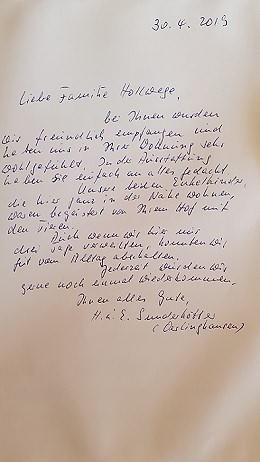 30.4.2019
Liebe Familie Hollwege,
bei Ihnen wurden
wir freundlich empfangen und
haben uns in Ihrer Wohnung sehr
wohlgefühlt. In der Ausstattung
haben Sie einfach an alles gedacht.
Unsere beiden Enkelkinder,
die hier ganz in der Nähe wohnen,
waren begeistert von Ihrem Hof mit
den Tieren.
Auch wenn wir hier nur
drei Tage verweilten, konnten wir
gut vom Alltag abschalten.
Jederzeit würden wir
gerne noch einmal wiederkommen.
Ihnen alles Gute,
H. u. E. Sunderkötter
(Oerlinghausen)